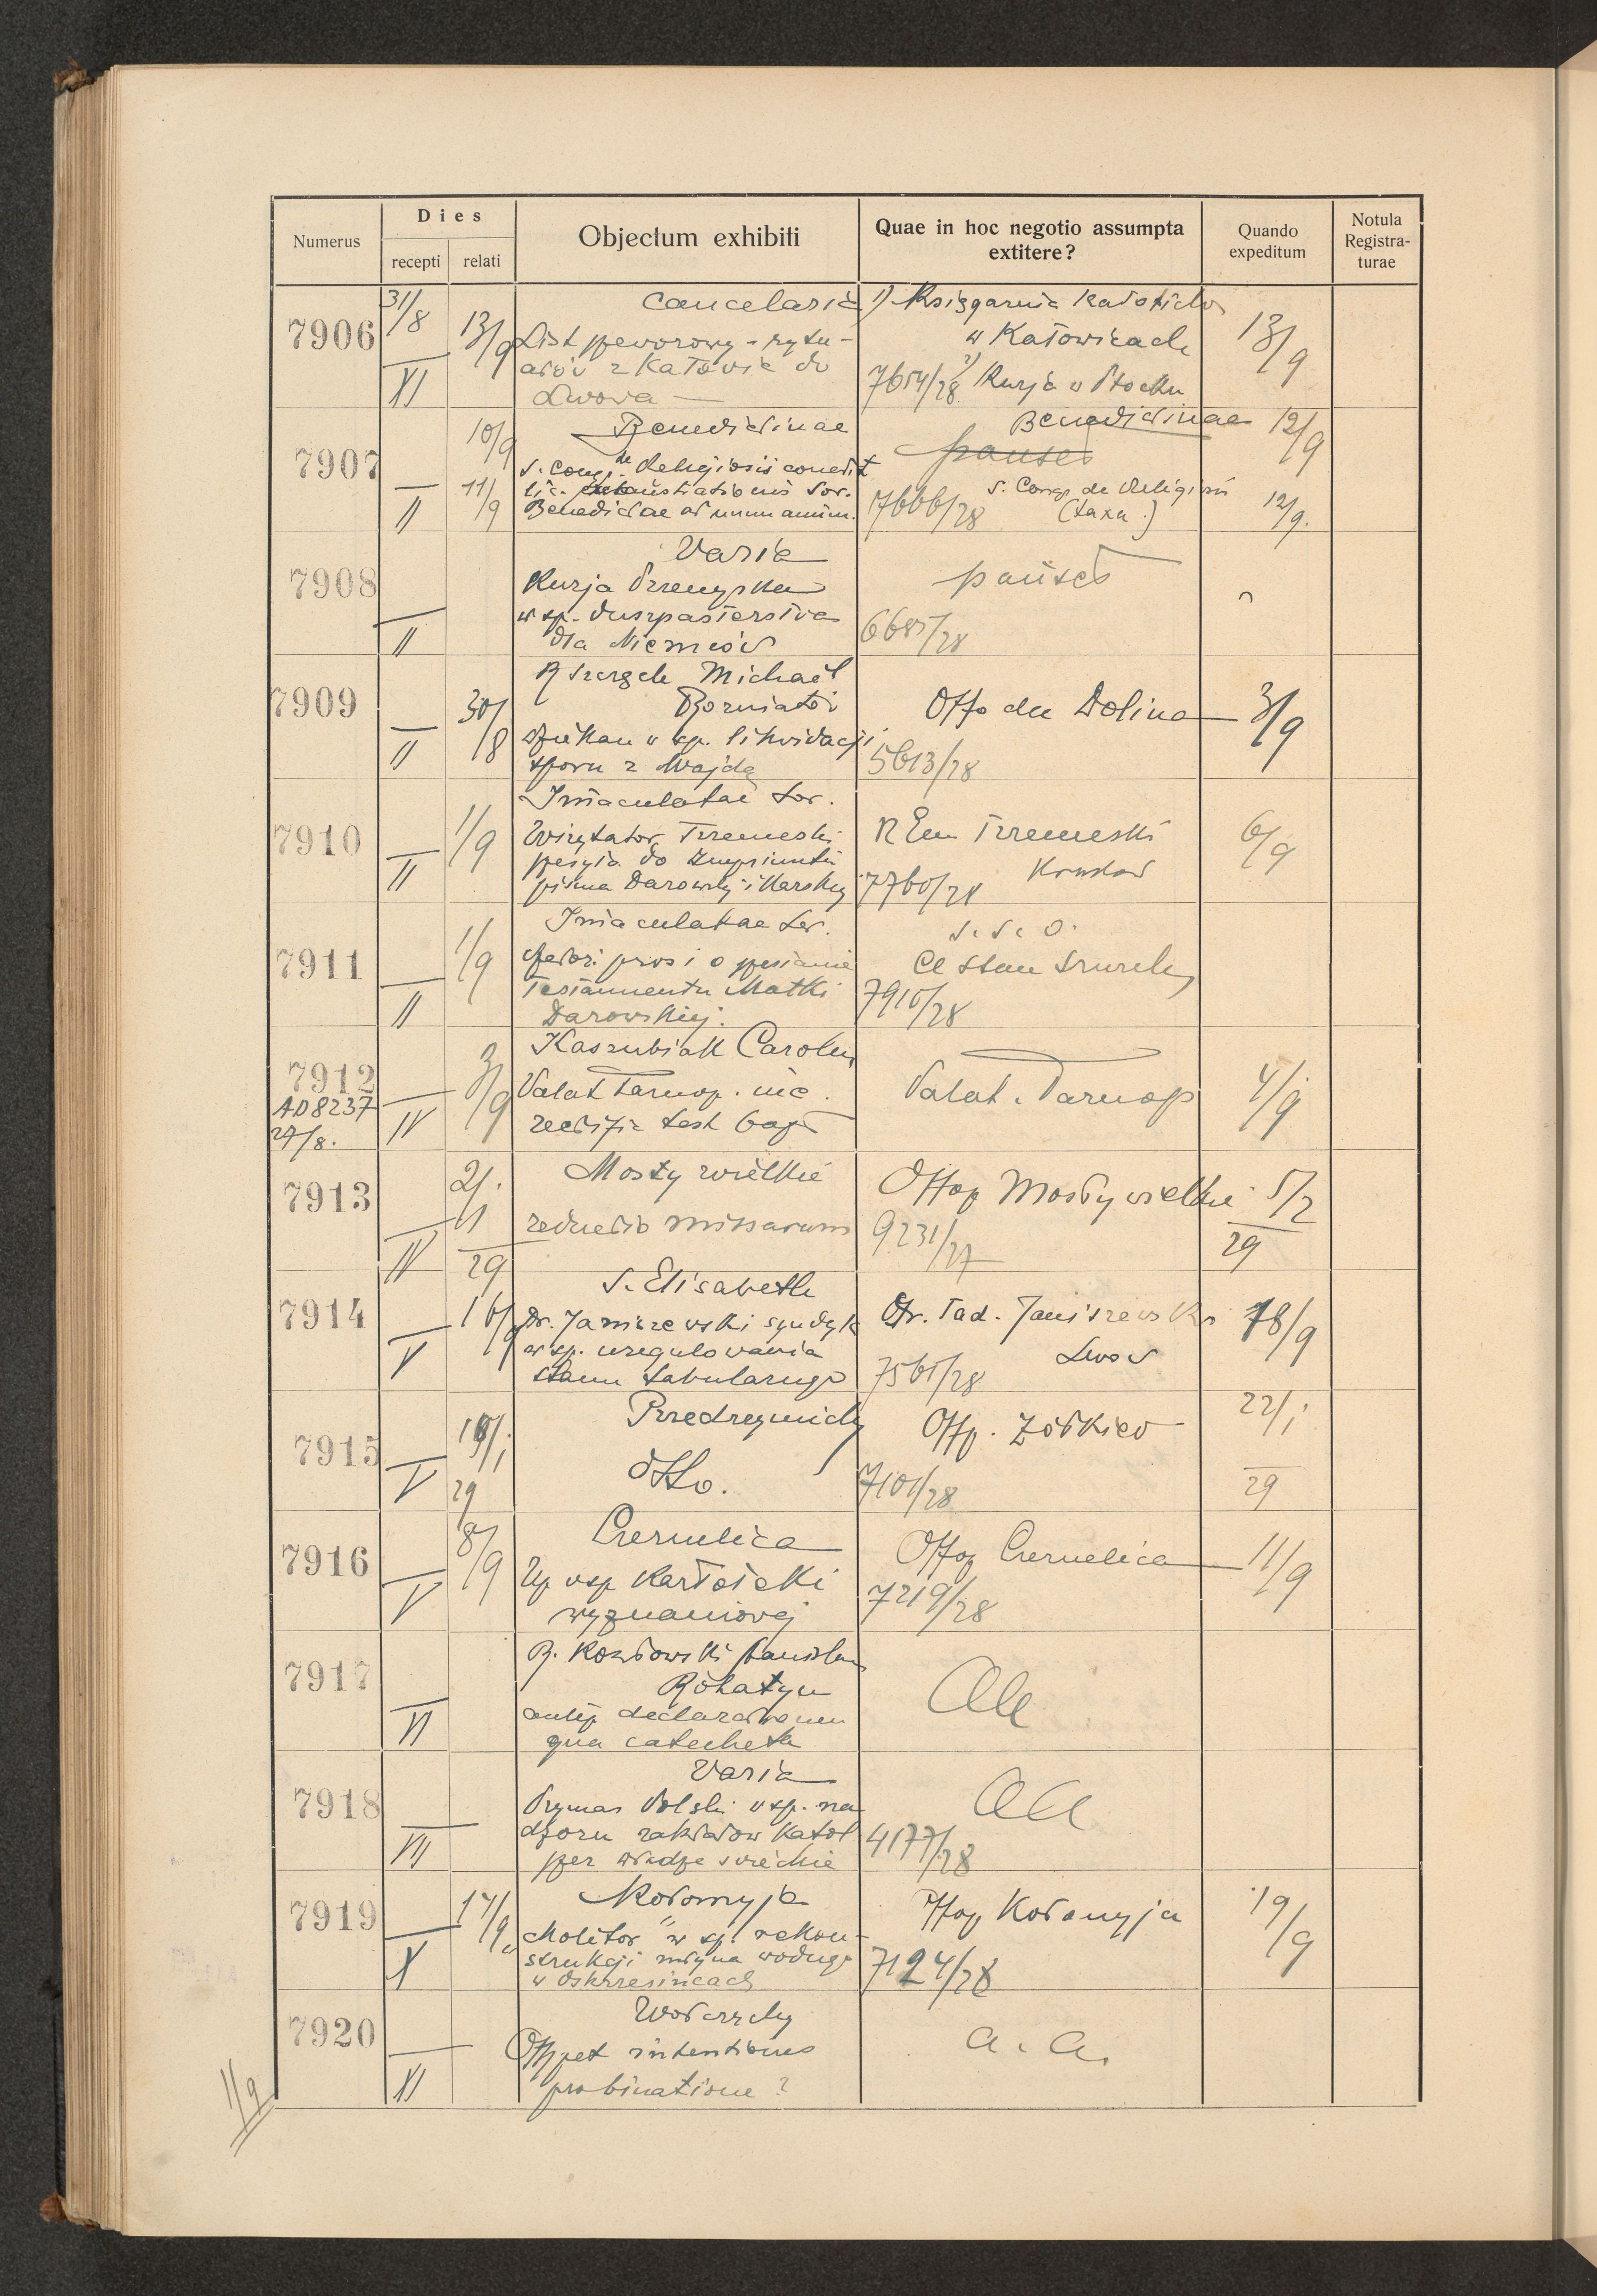 Numerus
Dies
recepti
relati
Objectum exhibiti
Quae in hoc negotio assumpta
extitere?
Quando
expeditum
Notula
Registra-
turae
7906
31/8
XI
13/9
Cancelaria
List przewozowy - rytu-
ałów z Katowic do
Lwowa
1) Księgarnia Katolicka
w Katowicach
2) Kurja w Płocku
7654/28
13/9
7907
II
10/9
11/9
Benedictinae
S. Cong. de Religiosis concedit
lic. exclaustrationis Sor.
Benedictae ad unum annum.
Benedictinae
S. Cong. de Religiosis
(taxa.)
7666/28
12/9
12/9.
7908
II
Varia
Kurja Przemyska
w sp. duszpasterstwa
dla Niemców
6685/28
7909
II
30/8
Michael
dziekan w sp. likwidacji
sporu z Wajdą
Offo dec Dolina
5613/28
3/9
7910
II
1/9
Immaculatae Sor.
Wizytator Trzemeski
pisma Darowskiej i Karskiej
R Em Trzemeski
Kraków
7760/28
6/9
7911
II
1/9
Immaculatae Sor.
prosi o przesłanie
Testamentu Matki
Darowskiej.
7910/28
7912
AD 8237
27/8.
IV
3/9
Kaszubiak Carolus
Palat Tarnop.
rectific test bapt
Palat. Tarnop
4/9
7913
IV
2/1
29
Mosty wielkie
reductio missarum
Offop Mosty wielkie
9231/27
5/2
29
7914
V
16/9
S. Elisabeth
Dr. Janiszewski syndyk
w sp. uregulowania
stanu tabularnego
Dr. Tad. Janiszewski
Lwów
7561/28
18/9
7915
V
29
Przedrzymichy
Otto.
Offp. Żółkiew
7101/28
22/1
29
7916
V
8/9
Czernelica
Up wsp Kartoteki
wyznaniowej
Offop Czernelica
7219/28
11/9
7917
VI
R. Kozłowski Stanislaus
Rohatyn
declarationem
qua catecheta
Ala
7918
VII
Varia
Prymas Polski wsp. na
dzoru zakładów katol
przez władze świeckie
4177/28
7919
X
17/9
Kołomyja
"Molitor" w sp. rekon-
strukcji młyna wodnego
w Oskrzesińcach
Offop Kołomyja
7124/28
19/9
7920
XI
Wołczuchy
Offpet intentiones
pro binatione ?
a. a.
1/9